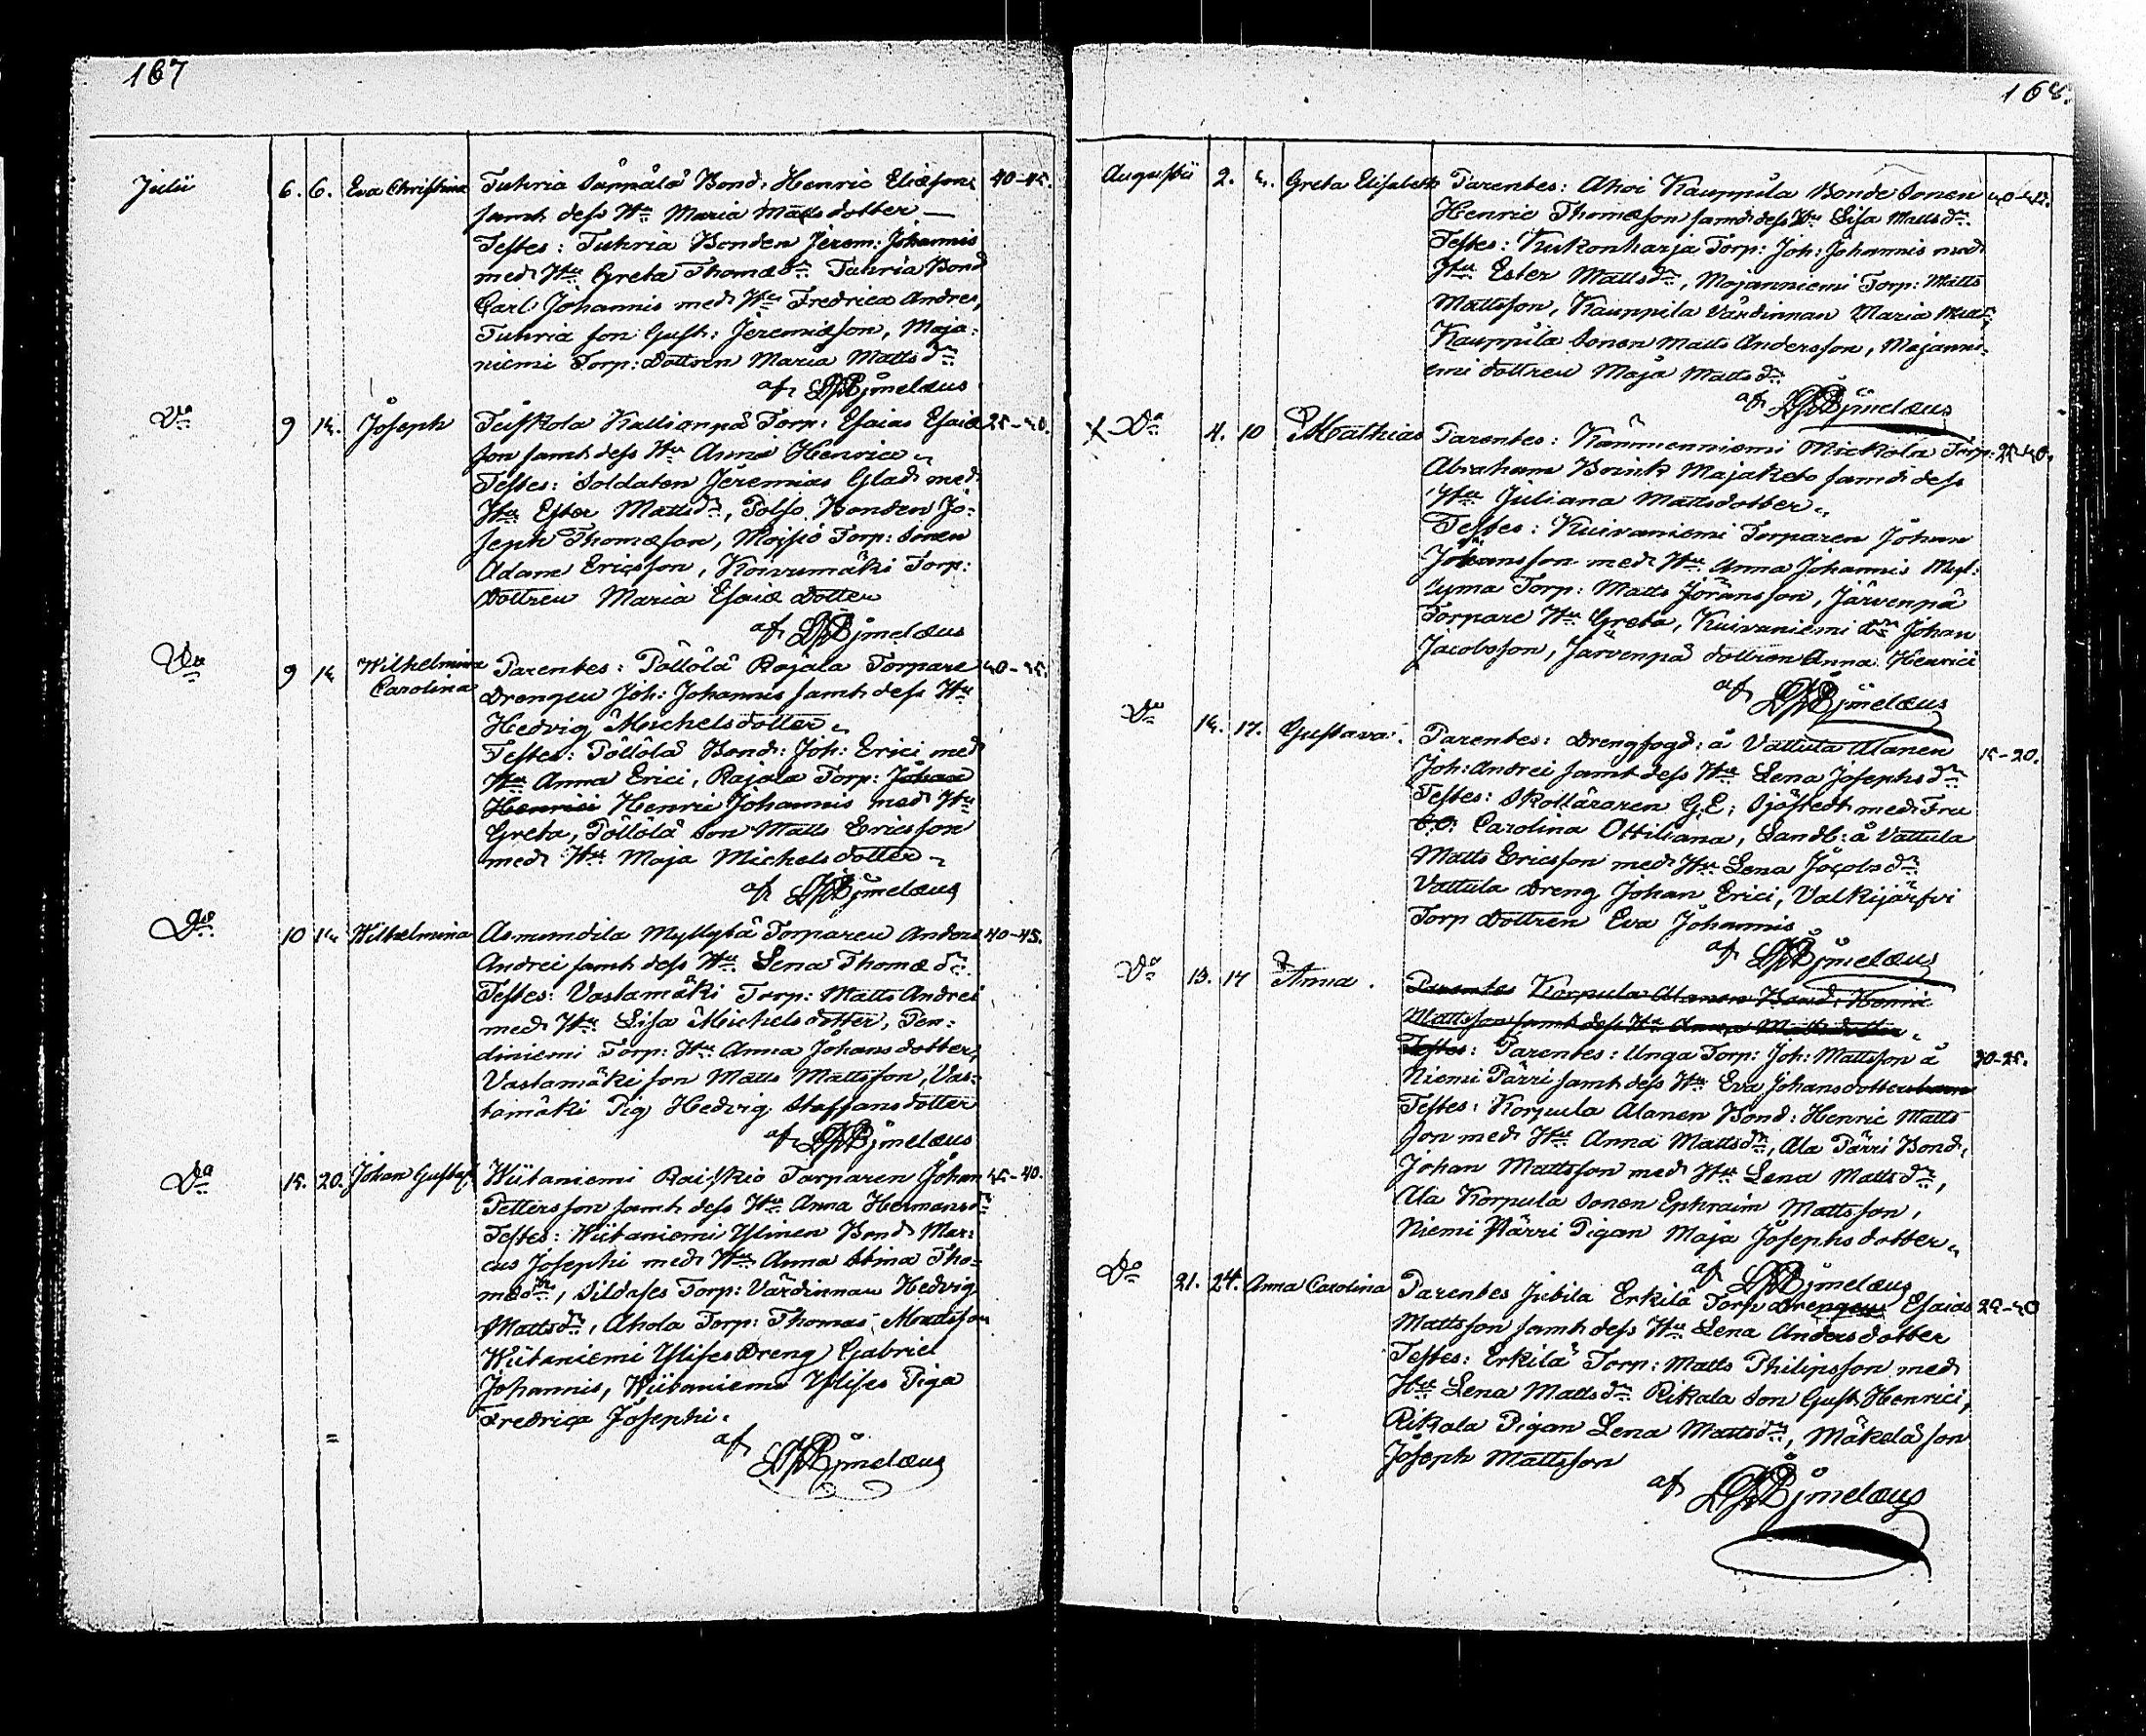 167
Julii 6. 6. Eva Christina Tuhria Såppälä Bond: Henric Eliæson 40-45.
samt dess Hu Maria Mattsdotter —
Testes: Tuhria Bonden Jerem: Johannis
med Hu Greta Thomædr Tuhria Bond
Carl Johannis med Hu Fredrica Andreæ,
Tuhria son Gust: Jeremiæson, Maja-
niemi Torp: Dottren Maria Matts dr
af Bjmelæus
Do 9 14. Joseph Teiskola Kallionpä Torp: Esaias Esaiæ
son samt dess Hu Anna Henrici
Testes: Soldaten Jeremias Glad med
Hu Ester Mattsdr, Polso Bonden Jo-
seph Thomæson, Moisio Torp: Sonen
Adam Ericsson, Koivumäki Torp:
Dottren Maria Esaiæ Dotter
af Bjmelæus
Do 9 14 Wilhelmina Carolina Parentes: Pöllölä Rajala Torpare
Drengen Joh: Johannis samt dess Hu
Hedvig Michelsdotter
Testes: Pöllölä Bond: Joh: Erici med
Hu Anna Erici, Rajala Torp: Johan
Henrici Henric Johannis med Hu
Greta, Pöllölä Son Matts Ericsson
med Hu Maja Michelsdotter
af Bjmelæus
Do 10 14 Wilhelmina Asmundila Myllylä Torparen Anders 40-45.
Andrei samt dess Hu Lena Thomædr
Testes: Vastamäki Torp: Matts Andrei
med Hu Lisa Michelsdotter, Pen-
diniemi Torp: Hu Anna Johansdotter,
Vastamäki son Matts Mattsson, Vas-
tamäki Pig Hedvig Staffansdotter
af Bjmelæus
Do 15. 20. Johan Gustaf Wiitaniemi Raiskio Torparen Johan
Pettersson samt dess Hu Anna Hermansdr
Testes: Wiitaniemi Ylinen Bond Mar-
cus Josephi med Hu Anna Stina Tho-
mædr, Torp: Värdinnan Hedvig
Mattsdr, Ahola Torp: Thomas Mattsson
Wiitaniemi Dreng Gabriel
Johannis, Wiitaniemi Piga
Fredrica Josephi.
af Bjmelæus
168.
Augusti 2. 4. Greta Elisabeth Parentes: Ahoi Kauppila Bonde Sonen
Henric Thomæson samt dess Hu Lisa Mattsdr
Testes: Kukonharja Torp: Joh: Johannis med
Hu Ester Mattsdr, Majanniemi Torp: Matts
Mattsson, Kauppila Värdinnan Maria
Kauppila Sonen Matts Andersson, Majanni-
emi dottren Maja Mattsdr
af Bjmelæus
X Do 4. 10 Mathias Parentes: Kämmenniemi Mickola Torp:
Abraham Majaketo samt dess
Hu Juliana Mattsdotter
Testes: Kuivaniemi Torparen Johan
Johansson med Hu Anna Johannis
Torp: Matts Göransson, Järvenpä
Torpare Hu Greta, Kuivaniemi Johan
Jacobsson, Järvenpä dottren Anna Henrici
af Bjmelæus
Do 14. 17. Gustava. Parentes: Drengfogd: å Vattula Alanen 15-20.
Joh: Andrei samt dess Hu Lena Josephsdr
Testes: Skolläraren G.E. Sjöstedt med Fru
Carolina Ottiliana, Landb: å Vattula
Matts Ericsson med Hu Lena Jacobsdr
Vattula Dreng Johan Erici, Valkijärfvi
Torp Dottren Eva Johannis
af Bjmelæus
Do 13. 17 Anna. Parentes Korpula Alanen Bond: Henric
Mattsson samt dess Hu Anna Mattsdotter
Testes: Parentes: Unga Torp: Joh: Mattsson å
Niemi Pärri samt dess Hu Eva Johansdotter
Testes: Korpula Alanen Bond: Henric Matts
son med Hu Anna Mattsdr, Ala Pärri Bond:
Johan Mattsson med Hu Lena Mattsdr,
Ala Korpula Sonen Ephraim Mattsson,
Niemi Pärri Pigan Maja Josephsdotter
af Bjmelæus
Do 21. 24. Anna Carolina Parentes Jutila Erkilä Torp Drengen Esaias
Mattsson samt dess Hu Lena Andersdotter
Testes: Erkilä Torp: Matts Philipsson med
Hu Lena Mattsdr Rikala Son Gust Henrici,
Rikala Pigan Lena Mattsdr, Mäkelä son
Joseph Mattsson
af Bjmelæus